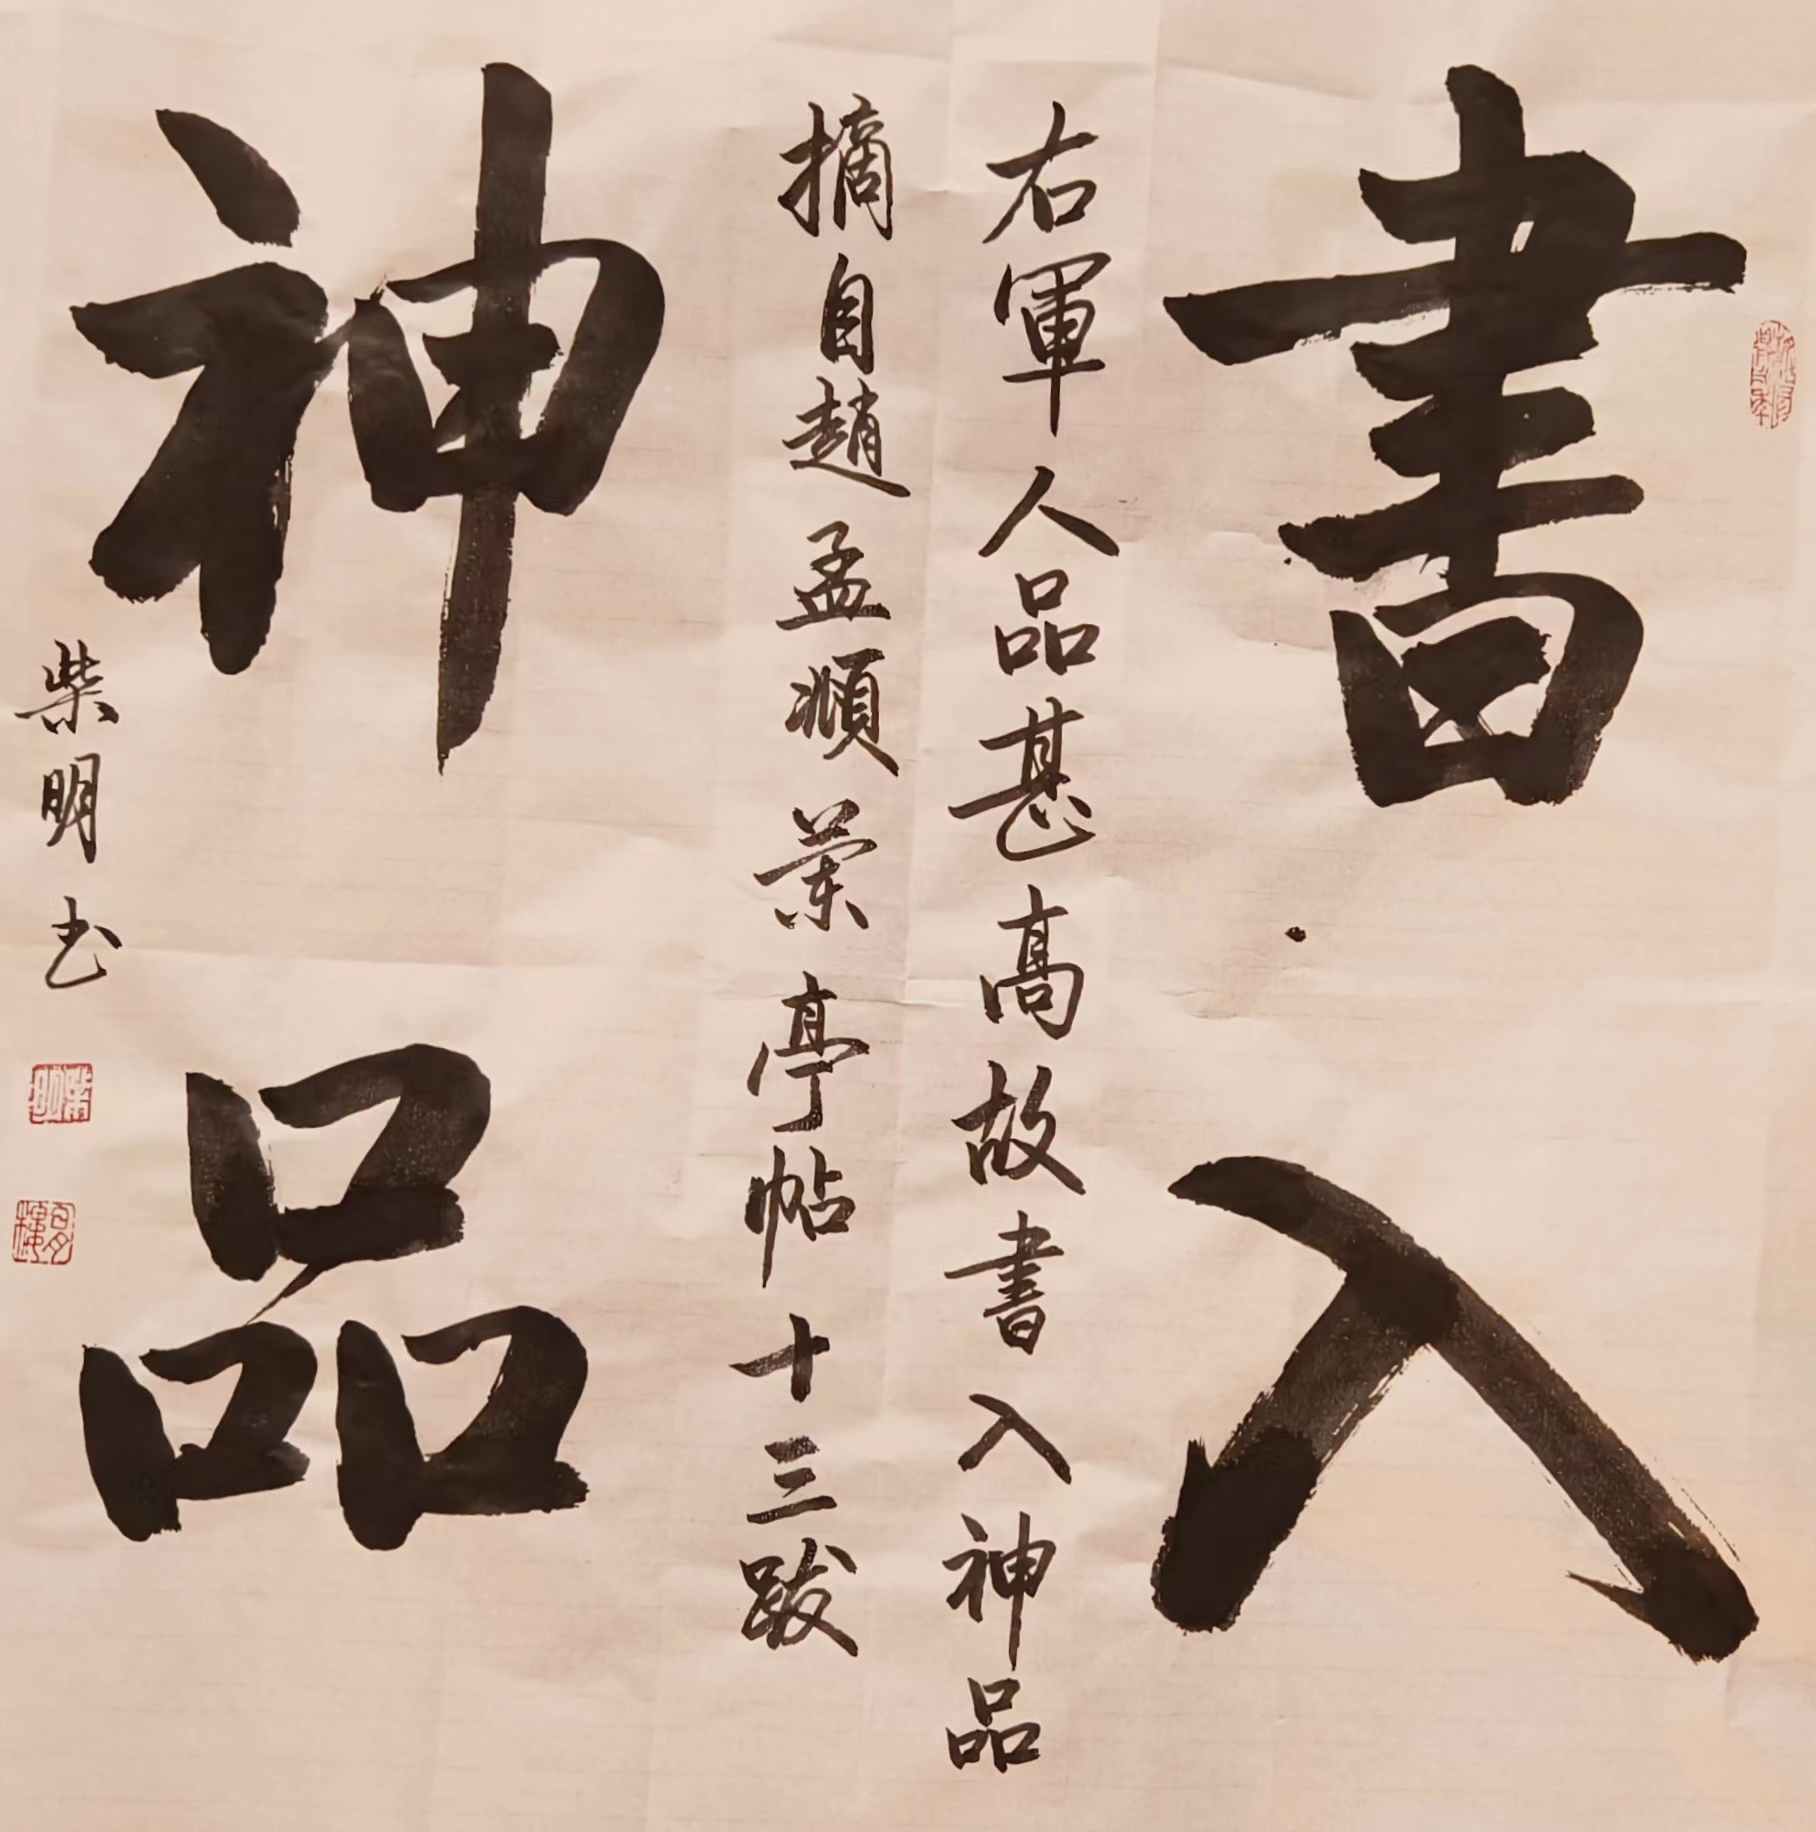 書入
右軍人品甚高故書入神品
摘自趙孟頫蘭亭帖十三跋
神品
柴明书
柴明